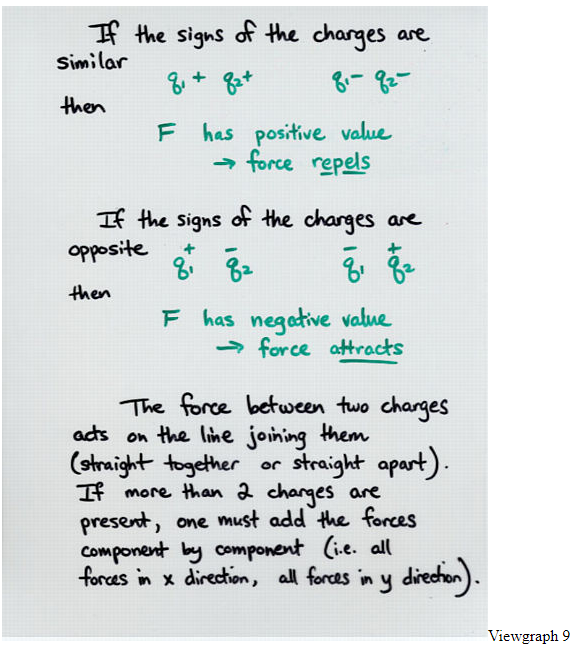 If the signs of the charges are
similar
q₁+ q₂+ q₁- q₂-
then
F has positive value
→ force repels
If the signs of the charges are
opposite
+ - - +
q₁ q₂ q₁ q₂
then
F has negative value
→ force attracts
The force between two charges
acts on the line joining them
(straight together or straight apart).
If more than 2 charges are
present, one must add the forces
component by component (i.e. all
forces in x direction, all forces in y direction).
Viewgraph 9